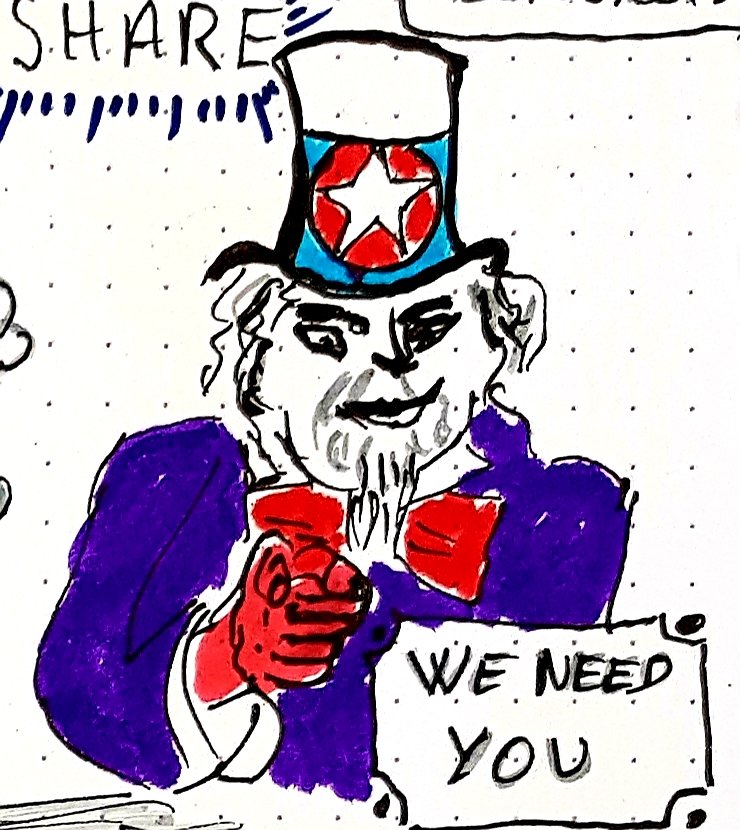 SHARE
WE NEED
YOU